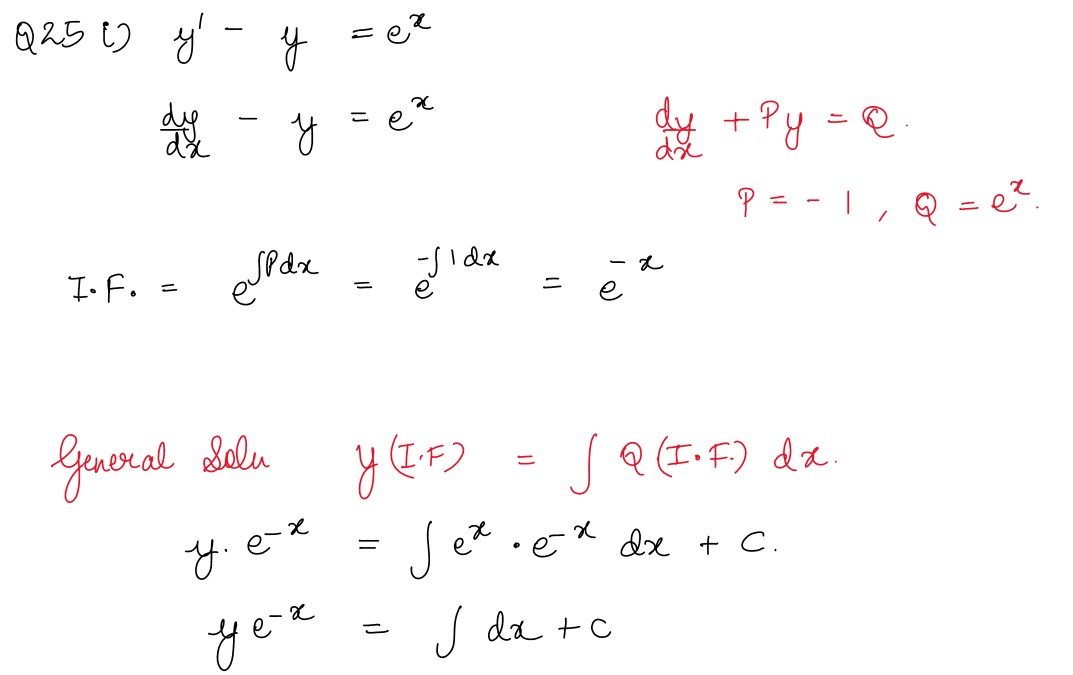 Q25 i) y' - y = e^x
dy/dx - y = e^x
dy/dx + Py = Q.
P = -1, Q = e^x.
I.F. = e^∫Pdx = e^-∫1dx = e^-x
General Solu y(I.F) = ∫Q(I.F.) dx.
y. e^-x = ∫e^x . e^-x dx + C.
y e^-x = ∫ dx + c